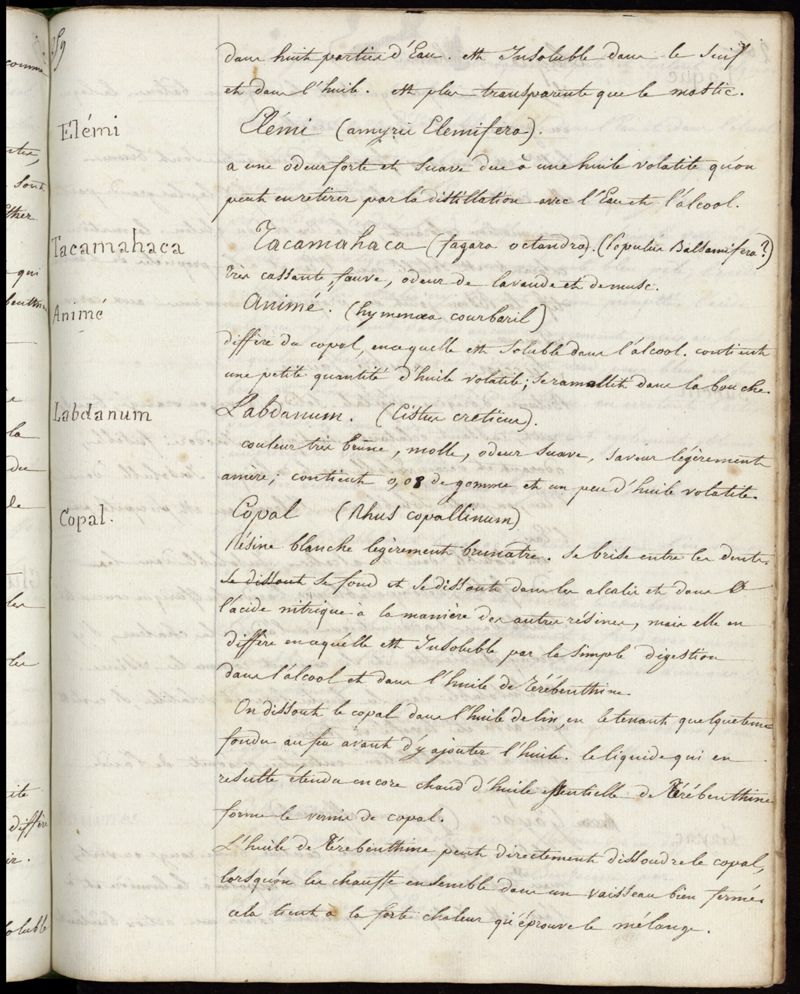 259
dans huit parties d'Eau. est Insoluble dans le Suif
et dans l'huile. est plus transparente que le mastic.
Elémi
Elémi (amyris Elemifera).
a une odeur forte et Suave due à une huile volatile qu'on
peut en retirer par la distillation avec l'Eau et l'álcool.
Tacamahaca
Tacamahaca (fagara octandra). (Populus Balsamifera?)
très cassante, fauve, odeur de lavande et de musc.
Animé
Animé. (hymenæa courbaril)
diffère du copal, en ce quelle est Soluble dans l'álcool. contient
une petite quantité d'huile volatile; se ramollit dans la bouche.
Labdanum
Labdanum. (Cistus creticus).
couleur très brune, molle, odeur Suave, Saveur légèrement
amère; contient 0,08 de gomme et un peu d'huile volatile.
Copal.
Copal (Rhus copallinum)
Résine blanche légèrement brunatre. Se brise entre les dents.
Se dissout Se fond et Se dissout dans les alcalis et dans
l'acide nitrique à la manière des autres résines, mais elle en
diffère en ce qu'elle est Insoluble par la Simple digestion
dans l'álcool et dans l'huile de Térébenthine.
On dissout le copal dans l'huile de lin, en le tenant quelque tems
fondu au feu avant d'y ajouter l'huile. le liquide qui en
resulte étendu encore chaud d'huile essentielle de Térébenthine
forme le vernis de copal.
L'huile de Térébenthine peut directement dissoudre le copal,
lorsqu'on les chauffe ensemble dans un vaisseau bien fermé.
cela tient à la forte chaleur qu'éprouve le mélange.